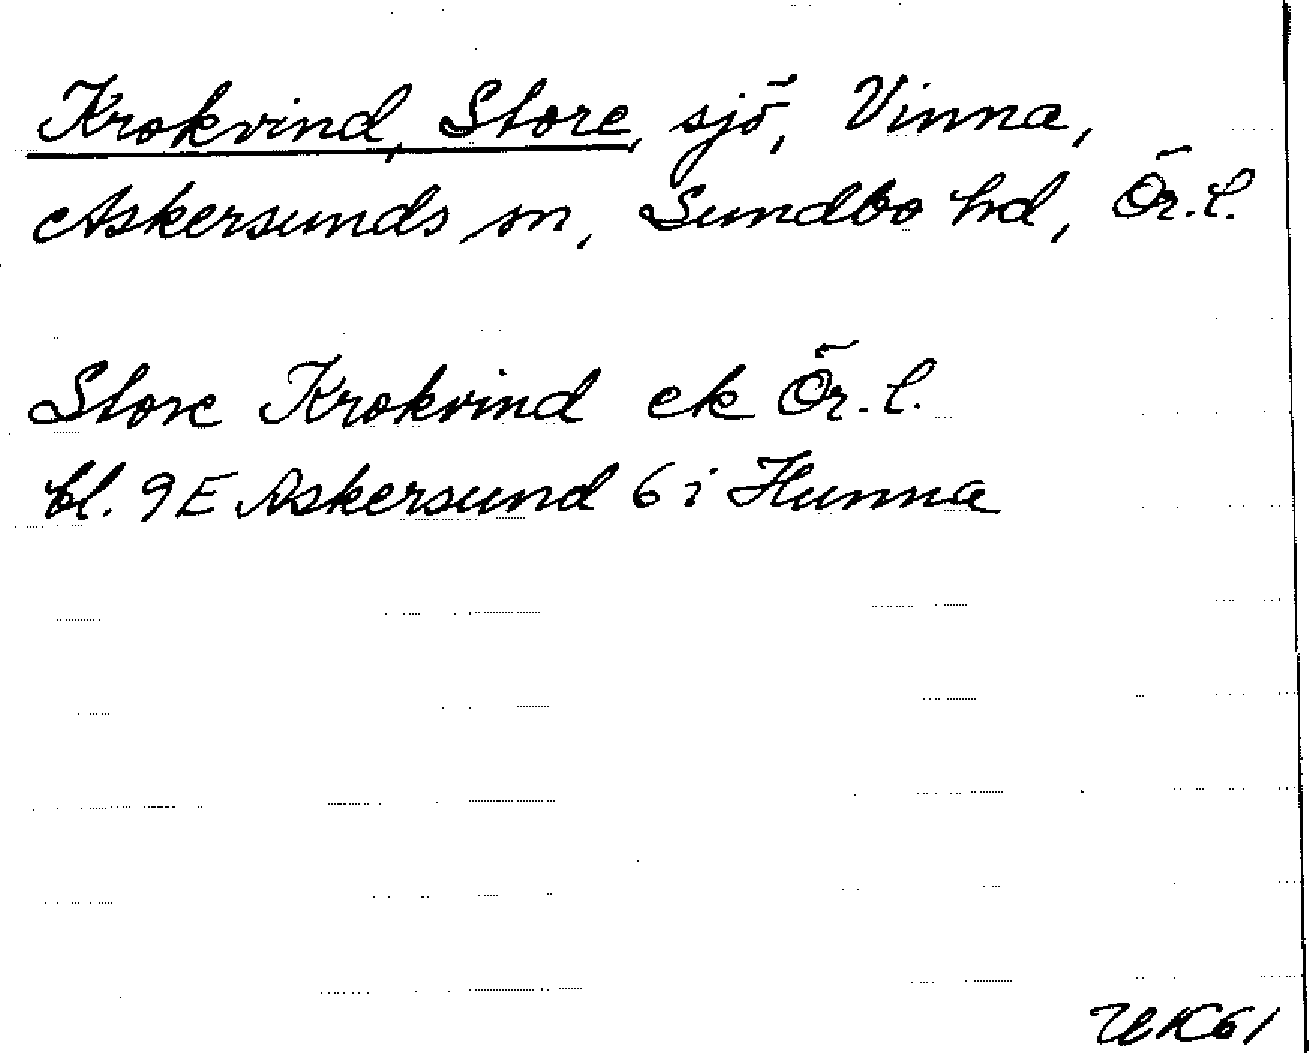 Krokvind, Store, sjö, Vinna,
Askersunds sn, Sundbo hd, Ör. l.
Store Krokvind ek Ör. l.
bl. 9E Askersund 6 i Hunna